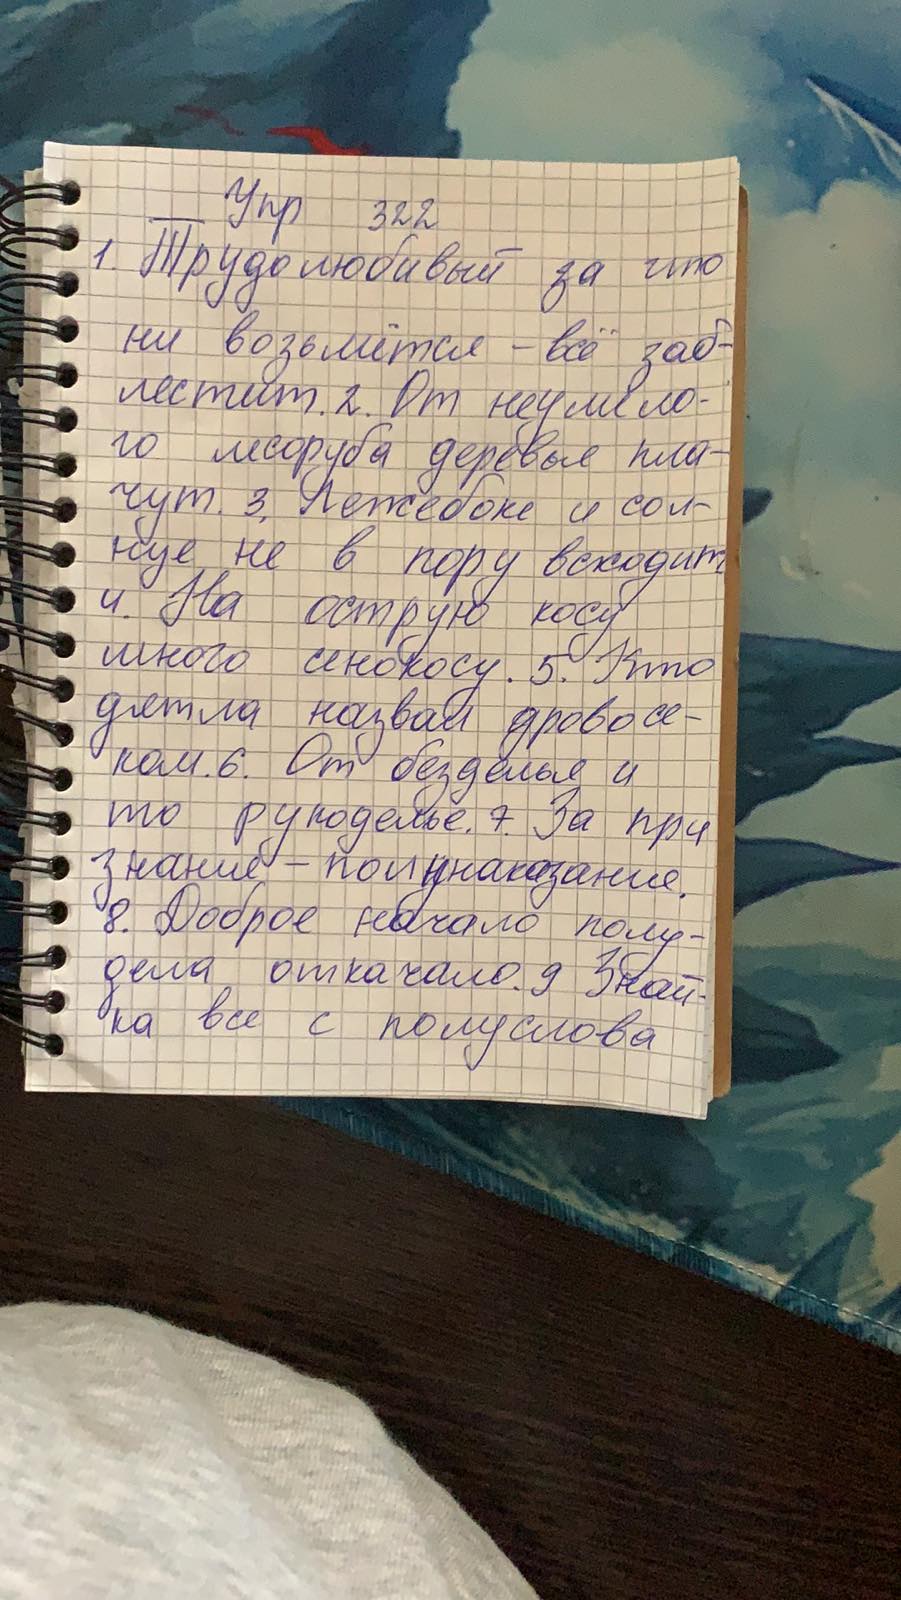 Упр 322
1. Трудолюбивый за что
ни возьмётся – всё заб-
лестит. 2. От неумело-
го лесоруба деревья пла-
чут. 3. Лежебоке и сол-
нце не в пору всходит
4. На острую косу
много сенокосу. 5. Кто
дятла назвал дровосе-
ком. 6. От безделья и
то рукоделье. 7. За при
знание – полунаказание.
8. Доброе начало полу-
дела откачало. 9 Знай-
ка все с полуслова